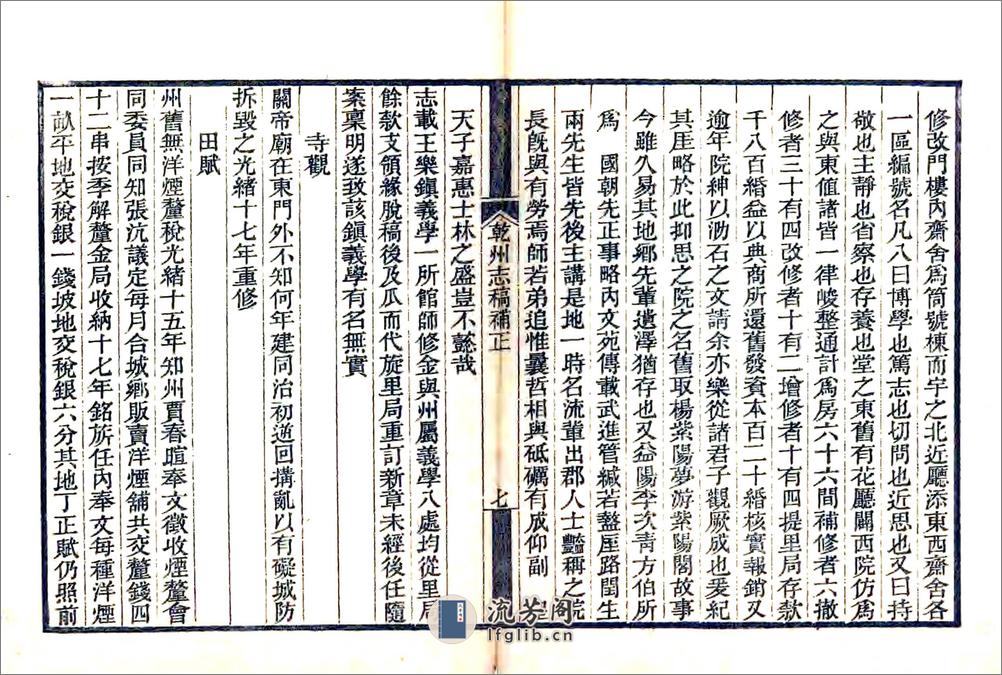 修改門樓內齋舍爲筒號棟而宇之北近廳添東西齋舍各
一區編號名凡八曰博學也篤志也切問也近思也又曰持
敬也主靜也省察也存養也堂之東舊有花廳闢西院仿爲
之與東値諸皆一律峻整通計爲房六十六間補修者六撤
修者三十有四改修者十有二增修者十有四提里局存款
千八百緡益以典商所還舊發資本百二十緡核實報銷又
逾年院紳以泐石之文請余亦樂從諸君子觀厥成也爰紀
其厓略於此抑思之院之名舊取楊紫陽夢游紫陽閣故事
今雖久易其地鄉先輩遺澤猶存也又益陽李次靑方伯所
爲　國朝先正事略內文苑傳載武進管緘若盩厔路閏生
兩先生皆先後主講是地一時名流輩出郡人士豔稱之院
長旣與有勞焉師若弟追惟曩哲相與砥礪有成仰副　聖
乾州志稿補正
七
天子嘉惠士林之盛豈不懿哉
志載王樂鎭義學一所館師修金與州屬義學八處均從里局
餘款支領緣脫稿後及瓜而代旋里局重訂新章未經後任隨
案稟明遂致該鎭義學有名無實
寺觀
關帝廟在東門外不知何年建同治初逆回搆亂以有礙城防
拆毀之光緒十七年重修
田賦
州舊無洋煙釐稅光緒十五年知州賈春暄奉文徵收煙釐會
同委員同知張沆議定每月合城鄉販賣洋煙舖共交釐錢四
十二串按季解釐金局收納十七年銘旂任內奉文每種洋煙
一畝平地交稅銀一錢坡地交稅銀六分其地丁正賦仍照前
流芳閣
lfglib.cn